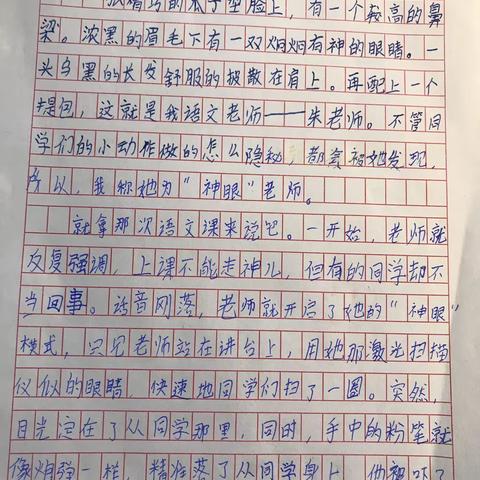 张精巧的瓜子型脸上，有一个较高的鼻
梁。浓黑的眉毛下有一双炯炯有神的眼睛。一
头乌黑的长发舒服的披散在肩上。再配上一个
提包，这就是我语文老师——朱老师。不管同
学们的小动作做的怎么隐秘，都会被她发现，
所以，我称她为“神眼”老师。
就拿那次语文课来说吧。一开始，老师就
反复强调，上课不能走神儿，但有的同学却不
当回事。话音刚落，老师就开启了她的“神眼”
模式，只见老师站在讲台上，用她那激光扫描
仪似的眼睛，快速地同学们扫了一圈。突然，
目光定在了从同学那里，同时，手中的粉笔就
像炮弹一样，精准落了从同学身上，他被吓了